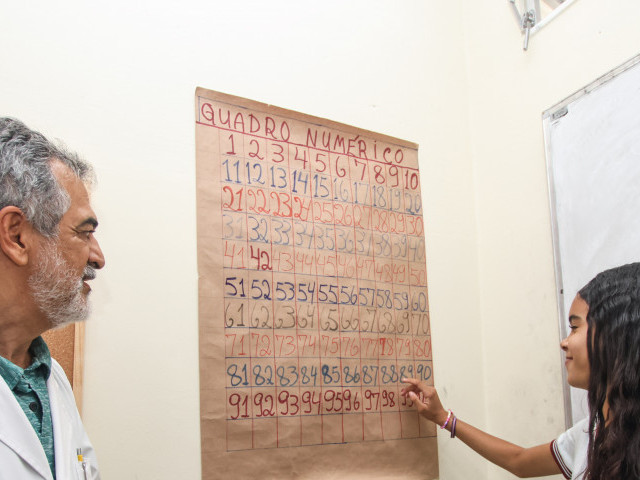 QUADRO NUMÉRICO
1 2 3 4 5 6 7 8 9 10
11 12 13 14 15 16 17 18 19 20
21 22 23 24 25 26 27 28 29 30
31 32 33 34 35 36 37 38 39 40
41 42 43 44 45 46 47 48 49 50
51 52 53 54 55 56 57 58 59 60
61 62 63 64 65 66 67 68 69 70
71 72 73 74 75 76 77 78 79 80
81 82 83 84 85 86 87 88 89 90
91 92 93 94 95 96 97 98 99